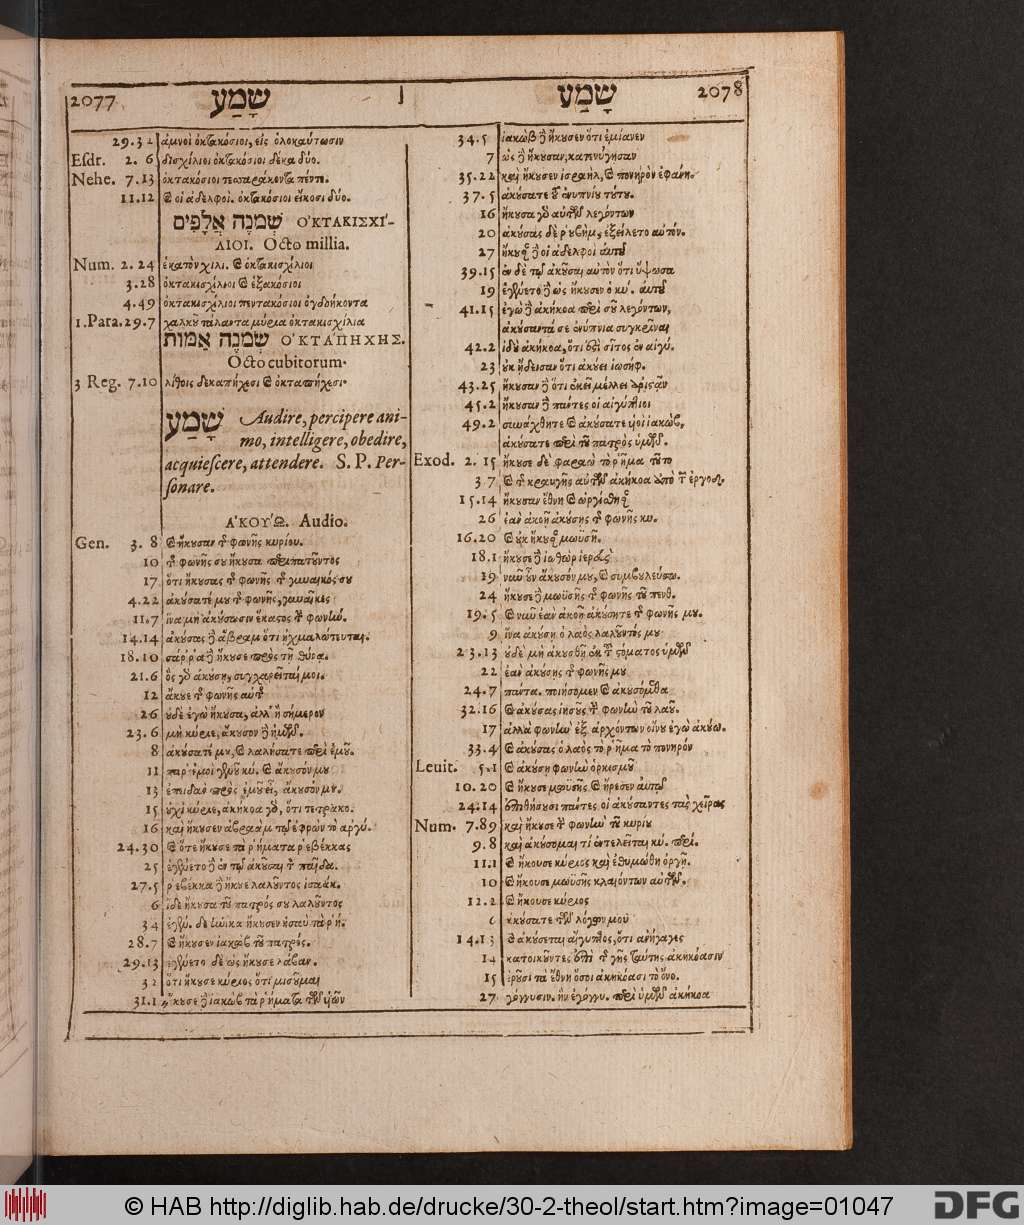 2077 שָׁמַע
29.32 ἀμνοὶ ὀκτακόσιοι, εἰς ὁλοκαύτωσιν
Esdr. 2. 6 δισχίλιοι ὀκτακόσιοι δέκα δύο.
Nehe. 7.13 ὀκτακόσιοι τεσσαράκοντα πέντε.
11.12 καὶ οἱ ἀδελφοὶ. ὀκτακόσιοι εἴκοσι δύο.
שְׁמֹנֶה אֲלָפִים ΟΚΤΑΚΙΣΧΙ-
ΛΙΟΙ. Octo millia.
Num. 2. 24 ἑκατὸν χιλι. καὶ ὀκτακισχίλιοι
3.28 ὀκτακισχίλιοι καὶ ἑξακόσιοι
4.49 ὀκτακισχίλιοι πεντακόσιοι ὀγδοήκοντα
1.Para.29.7 χαλκοῦ τάλαντα μύρια ὀκτακισχίλια
שְׁמֹנֶה אַמּוֹת ΟΚΤΑΠΗΧΗΣ.
Octo cubitorum.
3 Reg. 7.10 λίθοις δεκαπήχεσι καὶ ὀκταπήχεσι.
שָׁמַע Audire, percipere ani-
mo, intelligere, obedire,
acquiescere, attendere. S. P. Per-
sonare.
ἈΚΟΥΏ. Audio.
Gen. 3. 8 καὶ ἤκουσαν τῆς φωνῆς κυρίου.
10 τῆς φωνῆς σου ἤκουσα περιπατοῦντος
17 ὅτι ἤκουσας τῆς φωνῆς τῆς γυναικός σου
4.22 ἀκούσατέ μου τῆς φωνῆς, γυναῖκες
11.7 ἵνα μὴ ἀκούσωσιν ἕκαστος τὴν φωνὴν.
14.14 ἀκούσας δὲ ἄβραμ ὅτι ἠχμαλώτευται.
18.10 σάῤῥα δὲ ἤκουσε πρὸς τῇ θύρα.
21.6 ὃς γὰρ ἀκούσῃ, συγχαρεῖταί μοι.
12 ἄκουε τῆς φωνῆς αὐτῆς
26 οὐδὲ ἐγὼ ἤκουσα, ἀλλ' ἢ σήμερον
23.6 μὴ κύριε, ἄκουσον δὲ ἡμῶν.
8 ἀκούσατέ μου, καὶ λαλήσατε περὶ ἐμοῦ.
11 παρ' ἐμοὶ γενοῦ κύ. καὶ ἄκουσόν μου
13 ἐπειδὴ πρὸς ἐμοῦ εἶ, ἄκουσόν μου.
15 οὐχὶ κύριε, ἀκήκοα γὰρ, ὅτι τετρακο.
16 καὶ ἤκουσεν ἁβραὰμ τῷ ἐφρὼν τὸ ἀργύ.
24.30 καὶ ὅτε ἤκουσε τὰ ῥήματα ῥεβέκκας
25 ἐγένετο δὲ ἐν τῷ ἀκοῦσαι τὸν παῖδα.
27.5 ῥεβέκκα δὲ ἤκουε λαλοῦντος ἰσαάκ.
6 ἴδε ἤκουσα τοῦ πατρός σου λαλοῦντος
34 ἐγέν. δὲ ἡνίκα ἤκουσεν ἠσαῦ τὰ ῥή.
28.7 καὶ ἤκουσεν ἰακὼβ τοῦ πατρός.
29.13 ἐγένετο δὲ ὡς ἤκουσε λάβαν.
32 ὅτι ἤκουσε κύριος ὅτι μισοῦμαι
31.1 ἤκουσε δὲ ἰακὼβ τὰ ῥήματα τῶν υἱῶν
שָׁמַע 2078
34.5 ἰακὼβ δὲ ἤκουσεν ὅτι ἐμίανεν
7 ὡς δὲ ἤκουσαν, κατενύγησαν
35.22 καὶ ἤκουσεν ἰσραὴλ, καὶ πονηρὸν ἐφάνη.
37.5 ἀκούσατε τοῦ ἐνυπνίου τούτου.
16 ἤκουσα γὰρ αὐτῶν λεγόντων
20 ἀκούσας δὲ ῥουβὴμ, ἐξείλετο αὐτόν.
27 ἤκουσαν δὲ οἱ ἀδελφοὶ αὐτοῦ
39.15 ἐν δὲ τῷ ἀκοῦσαι αὐτὸν ὅτι ὕψωσα
19 ἐγένετο δὲ ὡς ἤκουσεν ὁ κύ. αὐτοῦ
41.15 ἐγὼ δὲ ἀκήκοα περὶ σοῦ λεγόντων,
ἀκούσαντά σε ἐνύπνια συγκρῖναι
42.2 ἰδοὺ ἀκήκοα, ὅτι ἐστὶ σῖτος ἐν αἰγύ.
23 οὐκ ᾔδεισαν ὅτι ἀκούει ἰωσήφ.
43.25 ἤκουσαν δὲ ὅτι ἐκεῖ μέλλει ἀριστᾶν
45.2 ἤκουσαν δὲ πάντες οἱ αἰγύπτιοι
49.2 συνάχθητε καὶ ἀκούσατε υἱοὶ ἰακὼβ,
ἀκούσατε περὶ τοῦ πατρὸς ὑμῶν.
Exod. 2. 15 ἤκουσε δὲ φαραὼ τὸ ῥῆμα τοῦτο
3 7 καὶ τῆς κραυγῆς αὐτῶν ἀκήκοα ἀπὸ τῶν ἐργοδ.
15.14 ἤκουσαν ἔθνη καὶ ὠργίσθησαν
26 ἐὰν ἀκοῇ ἀκούσῃς τῆς φωνῆς κυ.
16.20 καὶ οὐκ ἤκουσαν μωϋσῆ.
18.1 ἤκουσε δὲ ἰοθὼρ ἱερεὺς
19 νῦν οὖν ἄκουσόν μου, καὶ συμβουλεύσω.
24 ἤκουσε δὲ μωϋσῆς τῆς φωνῆς τοῦ πενθ.
19.5 καὶ νῦν ἐὰν ἀκοῇ ἀκούσητε τῆς φωνῆς μου.
9 ἵνα ἀκούσῃ ὁ λαὸς λαλοῦντός μου
23.13 οὐδὲ μὴ ἀκουσθῇ ἐκ τοῦ στόματος ὑμῶν
22 ἐὰν ἀκούσῃς τῆς φωνῆς μου
24.7 πάντα. ποιήσομεν καὶ ἀκουσόμεθα
32.16 καὶ ἀκούσας ἰησοῦς τὴν φωνὴν τοῦ λαοῦ.
17 ἀλλὰ φωνὴν ἐξ. ἀρχόντων οἴνου ἐγὼ ἀκούω.
33.4 καὶ ἀκούσας ὁ λαὸς τὸ ῥῆμα τὸ πονηρόν
Leuit. 5.1 καὶ ἀκούσῃ φωνὴν ὁρκισμοῦ
10.20 καὶ ἤκουσε μωϋσῆς, καὶ ἤρεσεν αὐτῷ
24.14 ἐπιθήσουσι πάντες οἱ ἀκούσαντες τὰς χεῖρας
Num. 7.89 καὶ ἤκουσε τὴν φωνὴν τοῦ κυρίου
9.8 καὶ ἀκούσομαι τί ἐντελεῖται κύ. περί.
11.1 καὶ ἤκουσε κύριος καὶ ἐθυμώθη ὀργῇ.
10 καὶ ἤκουσε μωϋσῆς κλαιόντων αὐτῶν.
12.2 καὶ ἤκουσε κύριος
6 ἀκούσατε τῶν λόγων μοῦ
14.13 καὶ ἀκούσεται αἴγυπτος, ὅτι ἀνήγαγες
14 κατοικοῦντες ἐπὶ τῆς γῆς ταύτης ἀκηκόασιν
15 ἐροῦσι τὰ ἔθνη ὅσοι ἀκηκόασι τὸ ὄνο.
27 γόγγυσιν. ἣν ἐγόγγυ. περὶ ὑμῶν ἀκήκοα
© HAB http://diglib.hab.de/drucke/30-2-theol/start.htm?image=01047
DFG